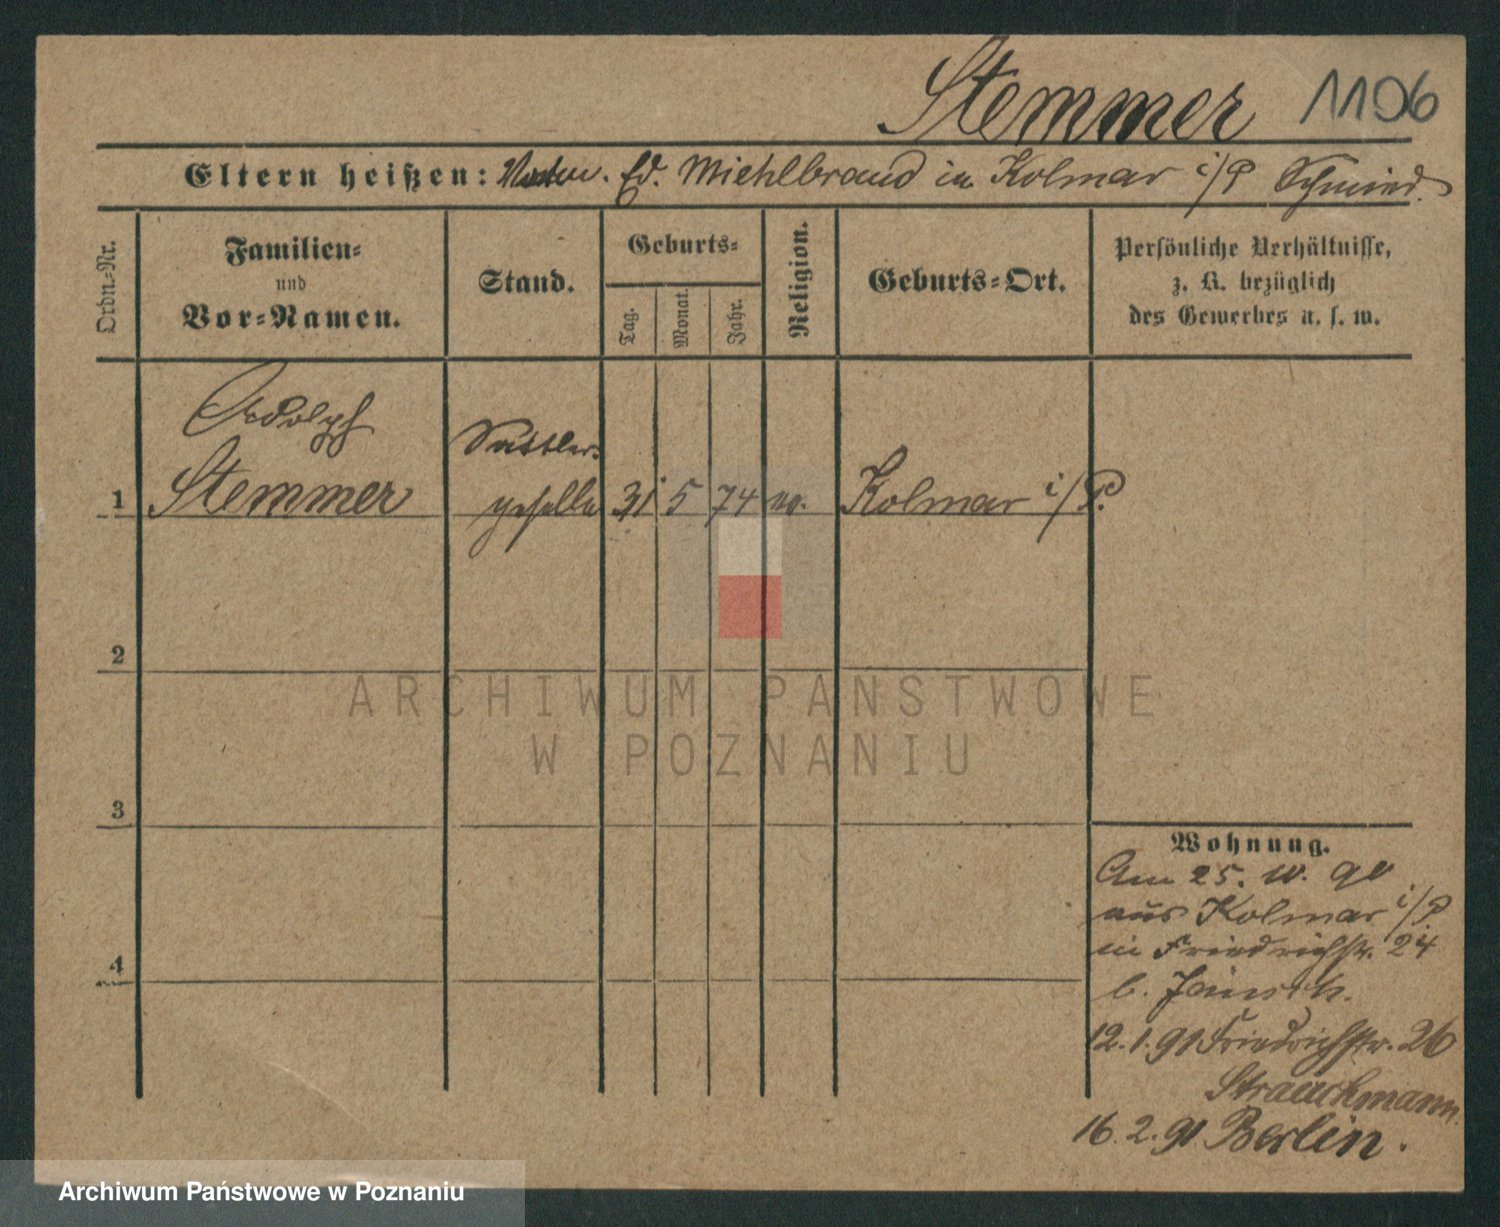 Stemmer 1106
Eltern heißen: Ed. Miehlbrand in Kolmar i/P Schmied.
Ordn.-Nr.
Familien-
und
Vor-Namen.
Stand.
Geburts-
Tag.
Monat.
Jahr.
Religion.
Geburts-Ort.
Persönliche Verhältnisse,
z. B. bezüglich
des Gewerbes u. s. w.
Adolph
Sattler-
1 Stemmer geselle 31 5 74 Kolmar i/P.
2
3
4
ARCHIWUM PAŃSTWOWE
W POZNANIU
Wohnung.
Am 25. 10. 90
aus Kolmar i/P
in Friedrichstr. 24
b.
12.1.91 Friedrichstr. 26
Strauchmann.
16.2.91 Berlin.
Archiwum Państwowe w Poznaniu